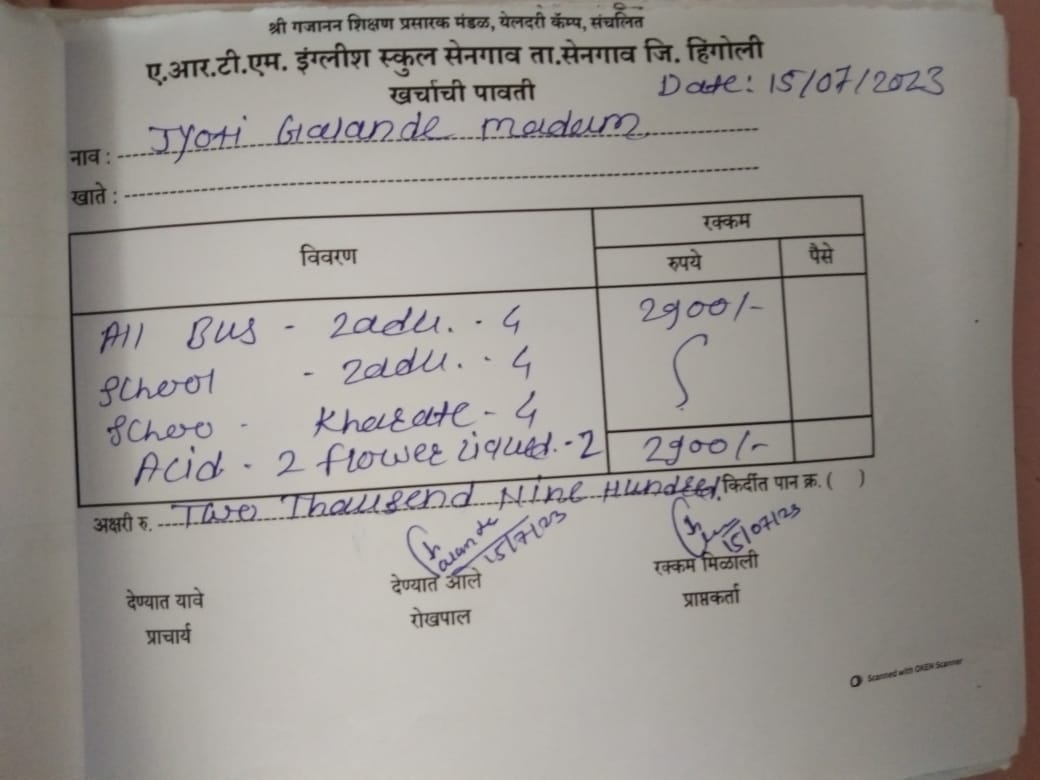 श्री गजानन शिक्षण प्रसारक मंडळ, येलदरी कॅम्प, संचलित
ए.आर.टी.एम. इंग्लीश स्कुल सेनगाव ता.सेनगाव जि. हिंगोली
खर्चाची पावती Date: 15/07/2023
नाव : Jyoti Galande madam
खाते :
विवरण रक्कम
रुपये पैसे
All Bus - zadu. - 4 2900/-
School - zadu. - 4
Schoo - Kharate - 4
Acid - 2 flower liqued. - 2 2900/-
अक्षरी रु. Two Thousend Nine Hundred किर्दीत पान क्र. ( )
Galande 15/7/23 15/07/23
देण्यात यावे देण्यात आले रक्कम मिळाली
प्राचार्य रोखपाल प्राप्तकर्ता
Scanned with OKEN Scanner